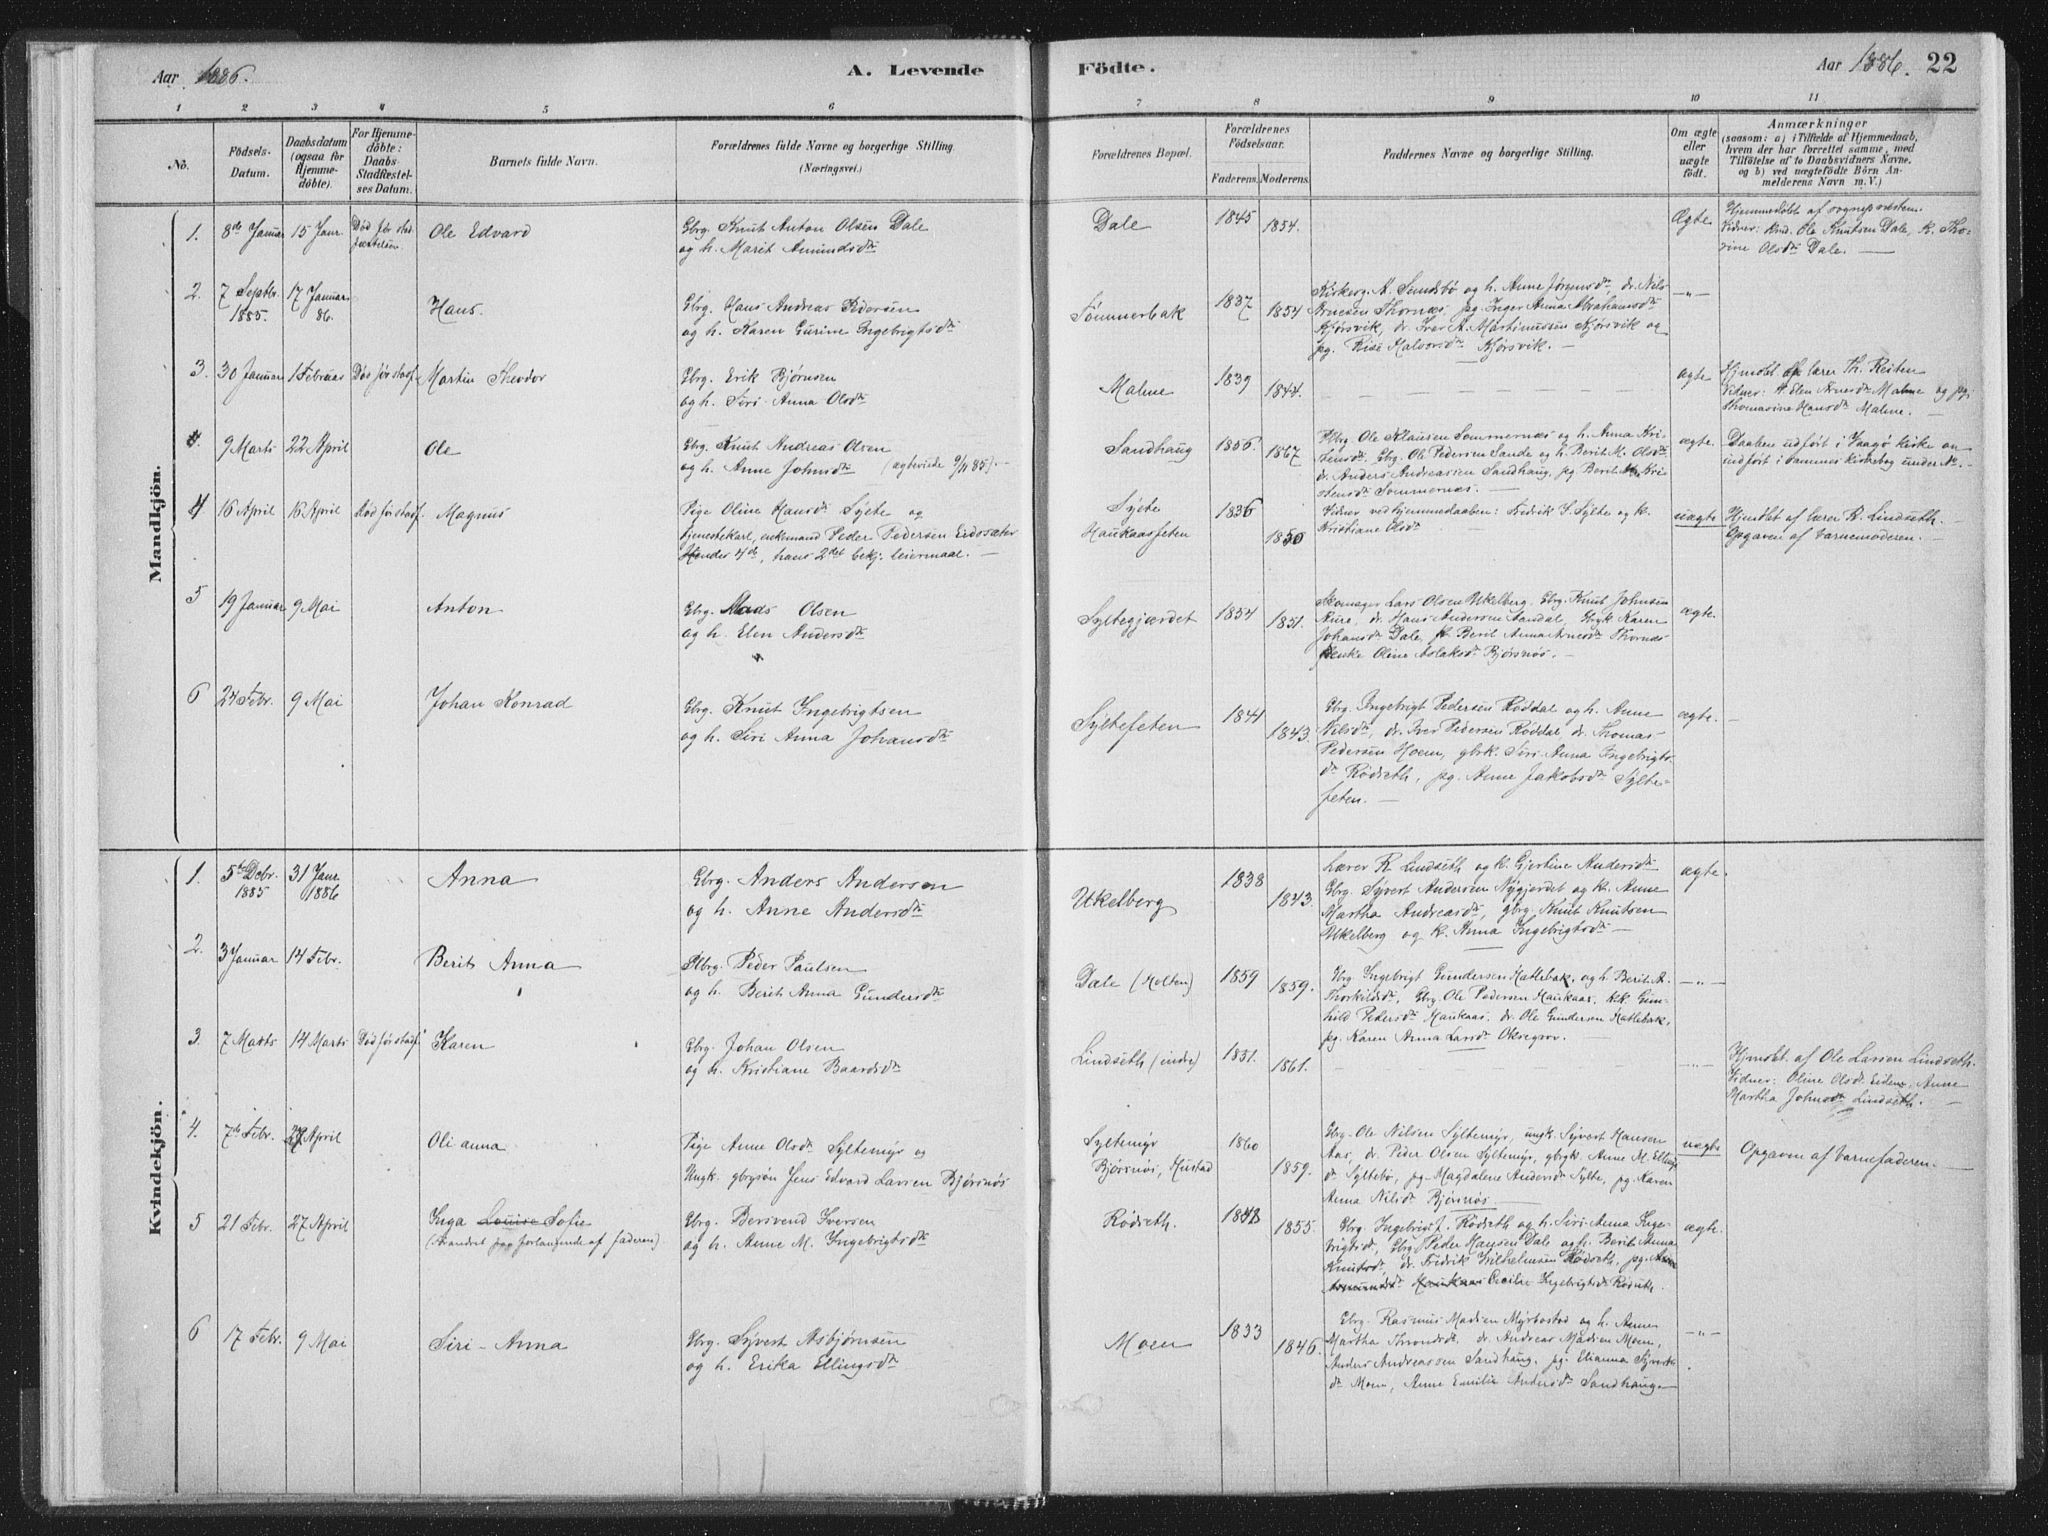 Aar 1886. A. Levende Födte. Aar 1886. 22
1 2 3 4 5 6 7 8 9 10 11
No. Födsels-Datum. Daabsdatum (ogsaa for Hjemmedöbte). For Hjemmedöbte: Daabs-Stadfæstelses Datum. Barnets fulde Navn. Forældrenes fulde Navne og borgerlige Stilling. (Næringsvei.) Forældrenes Bopæl. Forældrenes Födselsaar. Faderens. Moderens. Faddernes Navne og borgerlige Stilling. Om ægte eller uægte födt. Anmærkninger (saasom: a) i Tilfælde af Hjemmedaab, hvem der har forrettet samme, med Tilföielse af to Daabsvidners Navne. og b) ved uægtefödte Börn Anmelderens Navn m. V.)
Mandkjön.
1. 8de Januar 15 Janr. Död för stadfæstelsen. Ole Edvard
Gbrg. Knut Anton Olsen Dale
og h. Marit Amundsdtr
Dale 1845 1854. Ægte
Hjemmedøbt af sognepræsten.
Vidner: Knud. Ole Knutsen Dale, K. Thorine Olsdtr Dale. —
2. 7 Septbr. 1885. 17 Januar 86. Hans.
Gbrg. Hans Andreas Pedersen
og h. Karen Gurine Ingebrigtsdtr
Sömmerbak 1837 1854
Kirkerg. A. Sundsbö og h. Anne Jørgensdtr dr. Nils
Arnesen Thornæs, pg. Inger Anna Abrahamsdtr
Kjörsvik, dr. Iver A. Martinussen Kjörsvik og
pg. Risě Halvorsdtr Kjørsvik. —
—„—
3. 30 Januar 1 Februar Död för stadf. Martin Theodor
Gbrg. Erik Bjørnsen
og h. Siri Anna Olsdtr
Malme 1839 1844. ægte
Hjmdbt af lærer Th. Reiten
Vidner: Elen Arnesdtr Malme og pg.
Thomasine Hansdtr Malme. —
4. 9 Marts 22 April Ole
Gbrg. Knut Andreas Olsen
og h. Anne Johnsdtr (ægteviede 9/11 85). —
Sandhaug 1856. 1867
Gbrg. Ole Klausen Sommernæs og h. Anna Kristensdtr Gbrg. Ole Pedersen Sande og h. Berit M. Olsdtr
dr. Anders Andreassen Sandhaug, pg Berit Kristensdtr Sommernæs. —
ægte.
Daaben udført i Vaagø kirke
indført i sammes kirkebog under No. —
4 16 April 16 April Död för stadf. Magnus
Pige Oline Hansdtr Sylte og
tjenestekarl, enkemand Peder Pedersen Eidesæter
Hendes 4de, hans 2det bekj. leiermaal. —
Sylte
Haukaasfeten 1836 1850
Vidner ved hjemmedaaben: Fredrik S. Sylte og k.
Kristiane Olsdtr
uægte
Hjmdbt af lærer R. Lindseth.
Opgaven af barnemoderen. —
5 19 Januar 9 Mai Anton
Gbrg. Mads Olsen
og h. Elen Andersdtr
Syltegjærdet 1854 1851.
Skomager Lars Olsen Ukelberg. Gbrg. Knut Johnsen
Aure, dr. Hans Andersen Aandal, Gbrgk Karen
Johansdtr Dale, pg. Berit Anna Arnesdtr Thornæs
Penke Oline Aslaksdtr Bjørsnøs. —
ægte.
6 24 Febr. 9 Mai Johan Konrad
Gbrg. Knut Ingebrigtsen
og h. Siri Anna Johansdtr
Syltefeten 1841 1843.
Gbrg. Ingebrigt Pedersen Røddal og h. Anne
Nilsdtr, dr. Iver Pedersen Røddal, dr. Thomas
Pedersen Hoem, gbrk. Siri Anna Ingebrigtsdtr Rödseth, pg. Anne Jakobsdtr Syltefeten. —
ægte. —
Kvindekjön.
1. 5te Decbr. 1885 31 Janr. 1886 Anna
Gbrg. Anders Andersen
og h. Anne Andersdtr
Ukelberg 1838 1843.
Lærer R. Lindseth og k. Gjertine Andersdtr
Gbrg. Syvert Andersen Nygjerdet og k. Anne
Martha Andreasdtr, gbrg. Knut Knutsen
Ukelberg og k. Anna Ingebrigtsdtr —
ægte.
2. 3 Januar 14 Febr. Berit Anna
Gbrg. Peder Paulsen
og h. Berit Anna Gundersdtr
Dale (Holten) 1859 1859.
Gbrg. Ingebrigt Gundersen Hatlebak, og h. Berit A.
Thorkildsdtr, Gbrg. Ole Pedersen Haukaas, kk. Gunhild Pedersdtr Haukaas, dr. Ole Gundersen Hatlebak,
pg. Karen Anna Larsdtr Oksegrov. —
—„—
3. 7 Marts 14 Marts Död för stadf. Karen
Gbrg. Johan Olsen
og h. Kristiane Baardsdtr
Lindseth (indre) 1851. 1861. —„—
Hjmdbt. af Ole Larsen Lindseth.
Vidner: Oline Olsdtr Eidem, Anne
Martha Johnsdtr Lindseth. —
4. 7de Febr. 27 April Oli anna
Pige Anne Olsdtr Syltemyr og
Ungk. gbrgsøn Jens Edvard Larsen Bjørsnøs
Syltemyr
Bjørsnøs, Hustad 1860 1859.
Gbrg. Ole Nilsen Syltemyr, ungk. Syvert Hansen
Aas, dr. Peder Olsen Syltemyr, gbrgk. Anne M. Ellingsdtr Syltebø, pg. Magdalene Andersdtr Sylte, pg. Karen
Anna Nilsdtr Bjørsnøs. —
uægte
Opgaven af barnefaderen. —
5 21 Febr. 27 April Inga Louise Sofie
(forandret paa forlangende af faderen)
Gbrg. Bersvend Iversen
og h. Anne M. Ingebrigtsdtr
Rödseth. 1848 1855.
Gbrg. Ingebrigt I. Rödseth og h. Siri Anna Ingebrigtsdtr, Gbrg. Peder Hansen Dale og h. Berit Anna
Knutsdtr, dr. Fredrik Vilhelmsen Rödseth. pg. Anne
Asmundsdtr Haukaas Cecilie Ingebrigtsdtr Rödseth.
ægte.
6 17 Febr. 9 Mai Siri Anna
Gbrg. Syvert Asbjørnsen
og h. Erika Ellingsdtr
Moen 1833 1846.
Gbrg. Rasmus Madsen Myrbostad og h. Anne
Martha Throndsdtr. dr. Andreas Madsen Moen,
Anders Andreassen Sandhaug. pg. Elianna Syvertsdtr Moen, Anne Emilie Andersdtr Sandhaug —
—„—